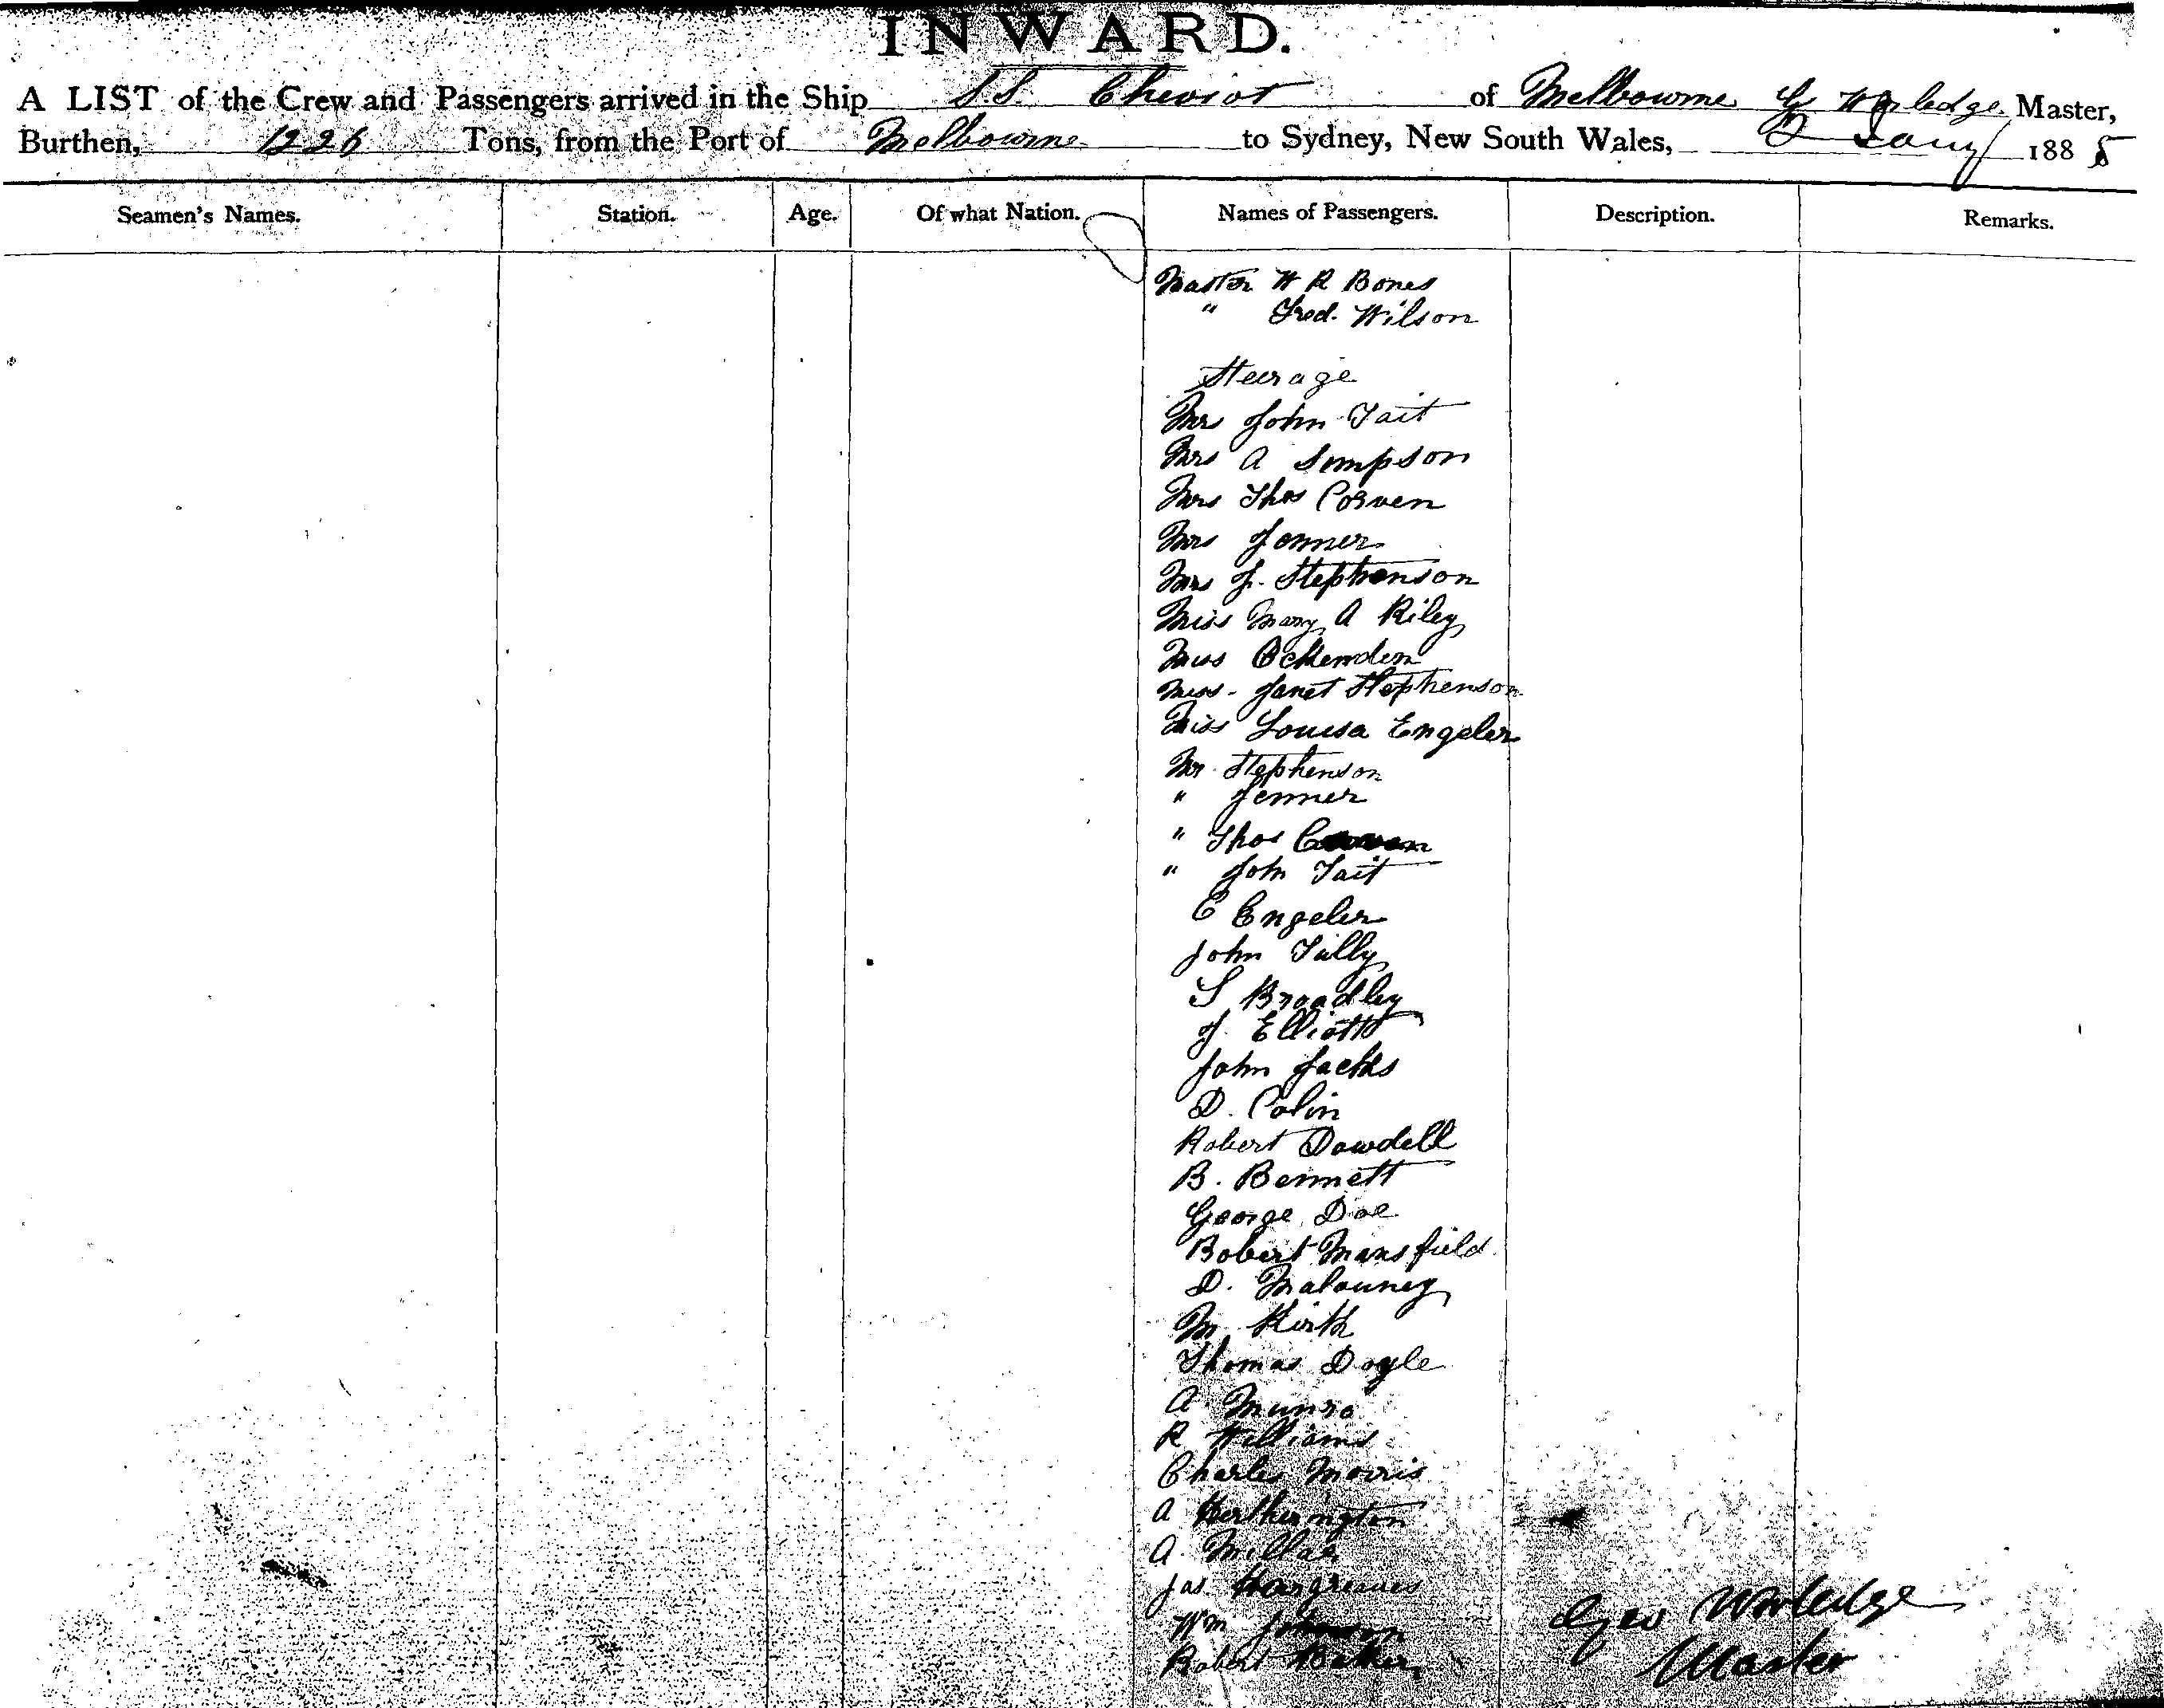 INWARD.
A LIST of the Crew and Passengers arrived in the Ship S.S. Cheviot of Melbourne G Worledge Master,
Burthen, 1226 Tons, from the Port of Melbourne to Sydney, New South Wales, 2 Jany 1885
Seamen's Names. Station. Age. Of what Nation. Names of Passengers. Description. Remarks.
Master W R Bones
" Fred. Wilson
Steerage
Mrs John Tait
Mrs A Simpson
Mrs Thos Corven
Mrs Jenner
Mrs J. Stephenson
Miss Mary A Riley
Miss Ockenden
Miss Janet Stephenson
Miss Louisa Engeler
Mr Stephenson
" Jenner
" Thos
" John Tait
E Engeler
John Tully
S Broadley
J. Elliott
John Jacks
D. Colin
Robert Dowdell
B. Bennett
George Doe
Robert Mansfield
D. Malouney
M Kirk
Thomas Doyle
A Munro
R Williams
Charles Morris
A Hertherington
A. Millar
Jas. Hargreaves
Wm Johnson
Robert
Geo Worledge
Master